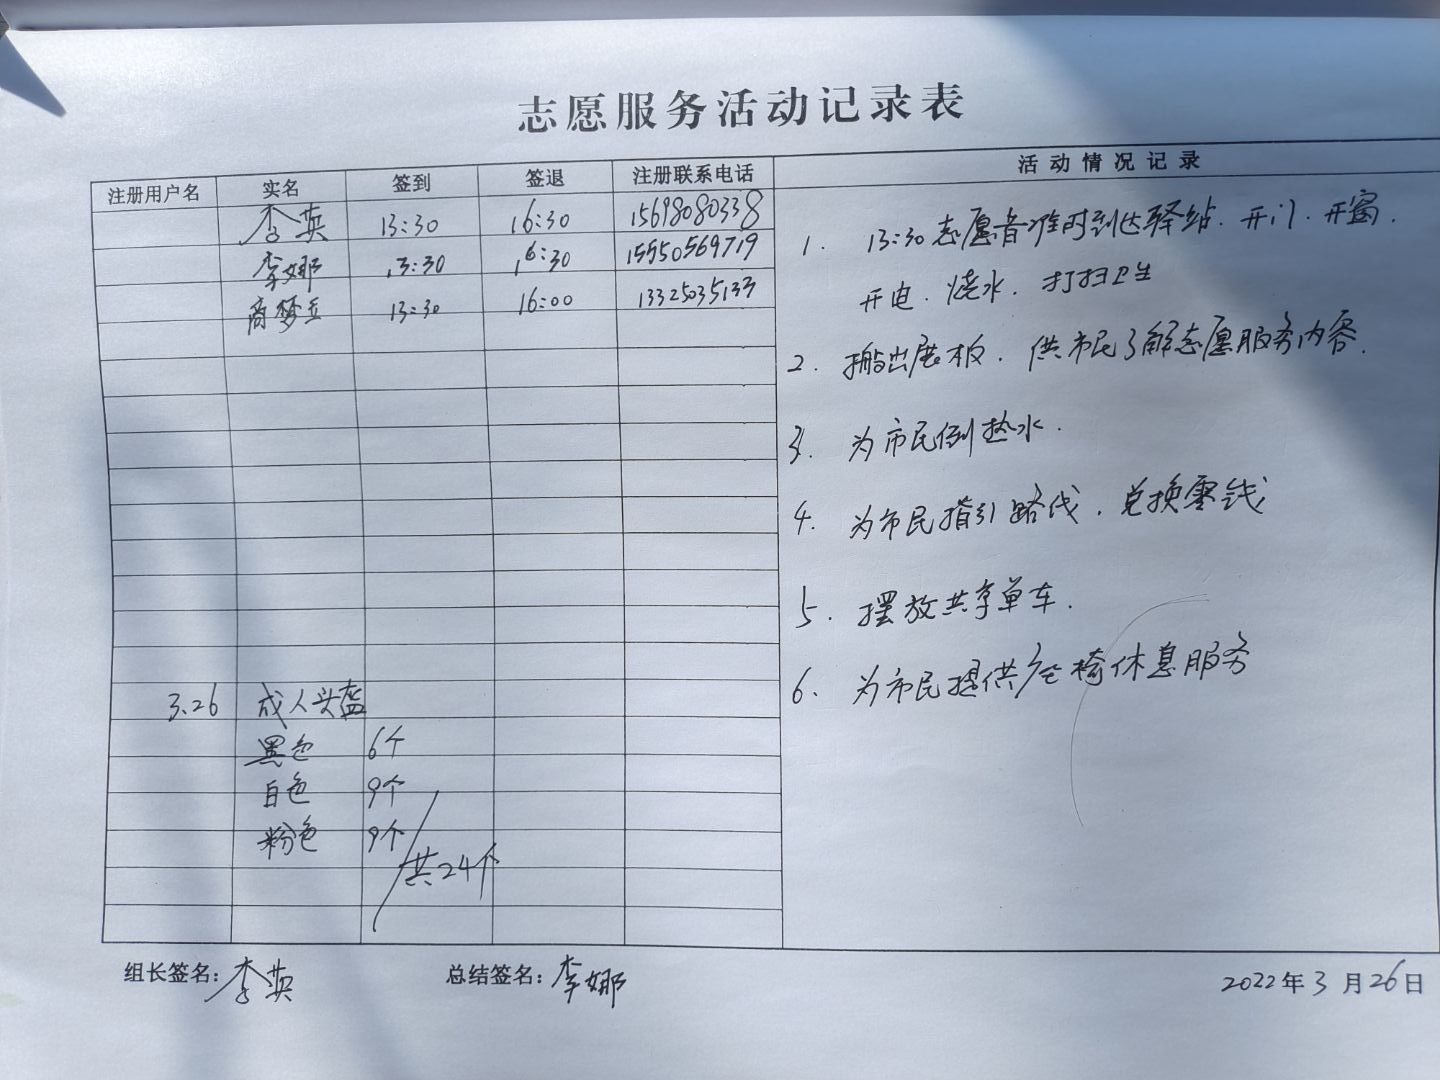 志愿服务活动记录表
注册用户名 实名 签到 签退 注册联系电话 活动情况记录
李英 13:30 16:30 15698080338
李娜 13:30 16:30 15550569719
商梦 13:30 16:00 13325035133
1. 13:30志愿者准时到达驿站.开门.开窗.
开电.烧水.打扫卫生
2. 搬出展板.供市民了解志愿服务内容.
3. 为市民倒热水.
4. 为市民指引路线.兑换零钱
5. 摆放共享单车.
6. 为市民提供座椅休息服务
3.26 成人头盔
黑色 6个
白色 9个
粉色 9个
共24个
组长签名:李英 总结签名:李娜 2022年3月26日